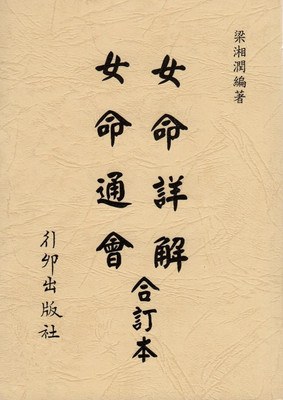 梁湘潤編著
女命詳解
女命通會
合訂本
行卯出版社